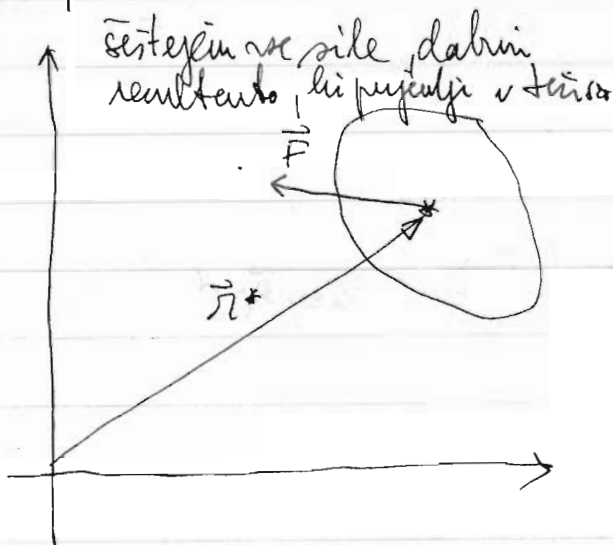 seštejem vse sile, dobim
rezultanto, ki prijemlje v težišču
F
r*